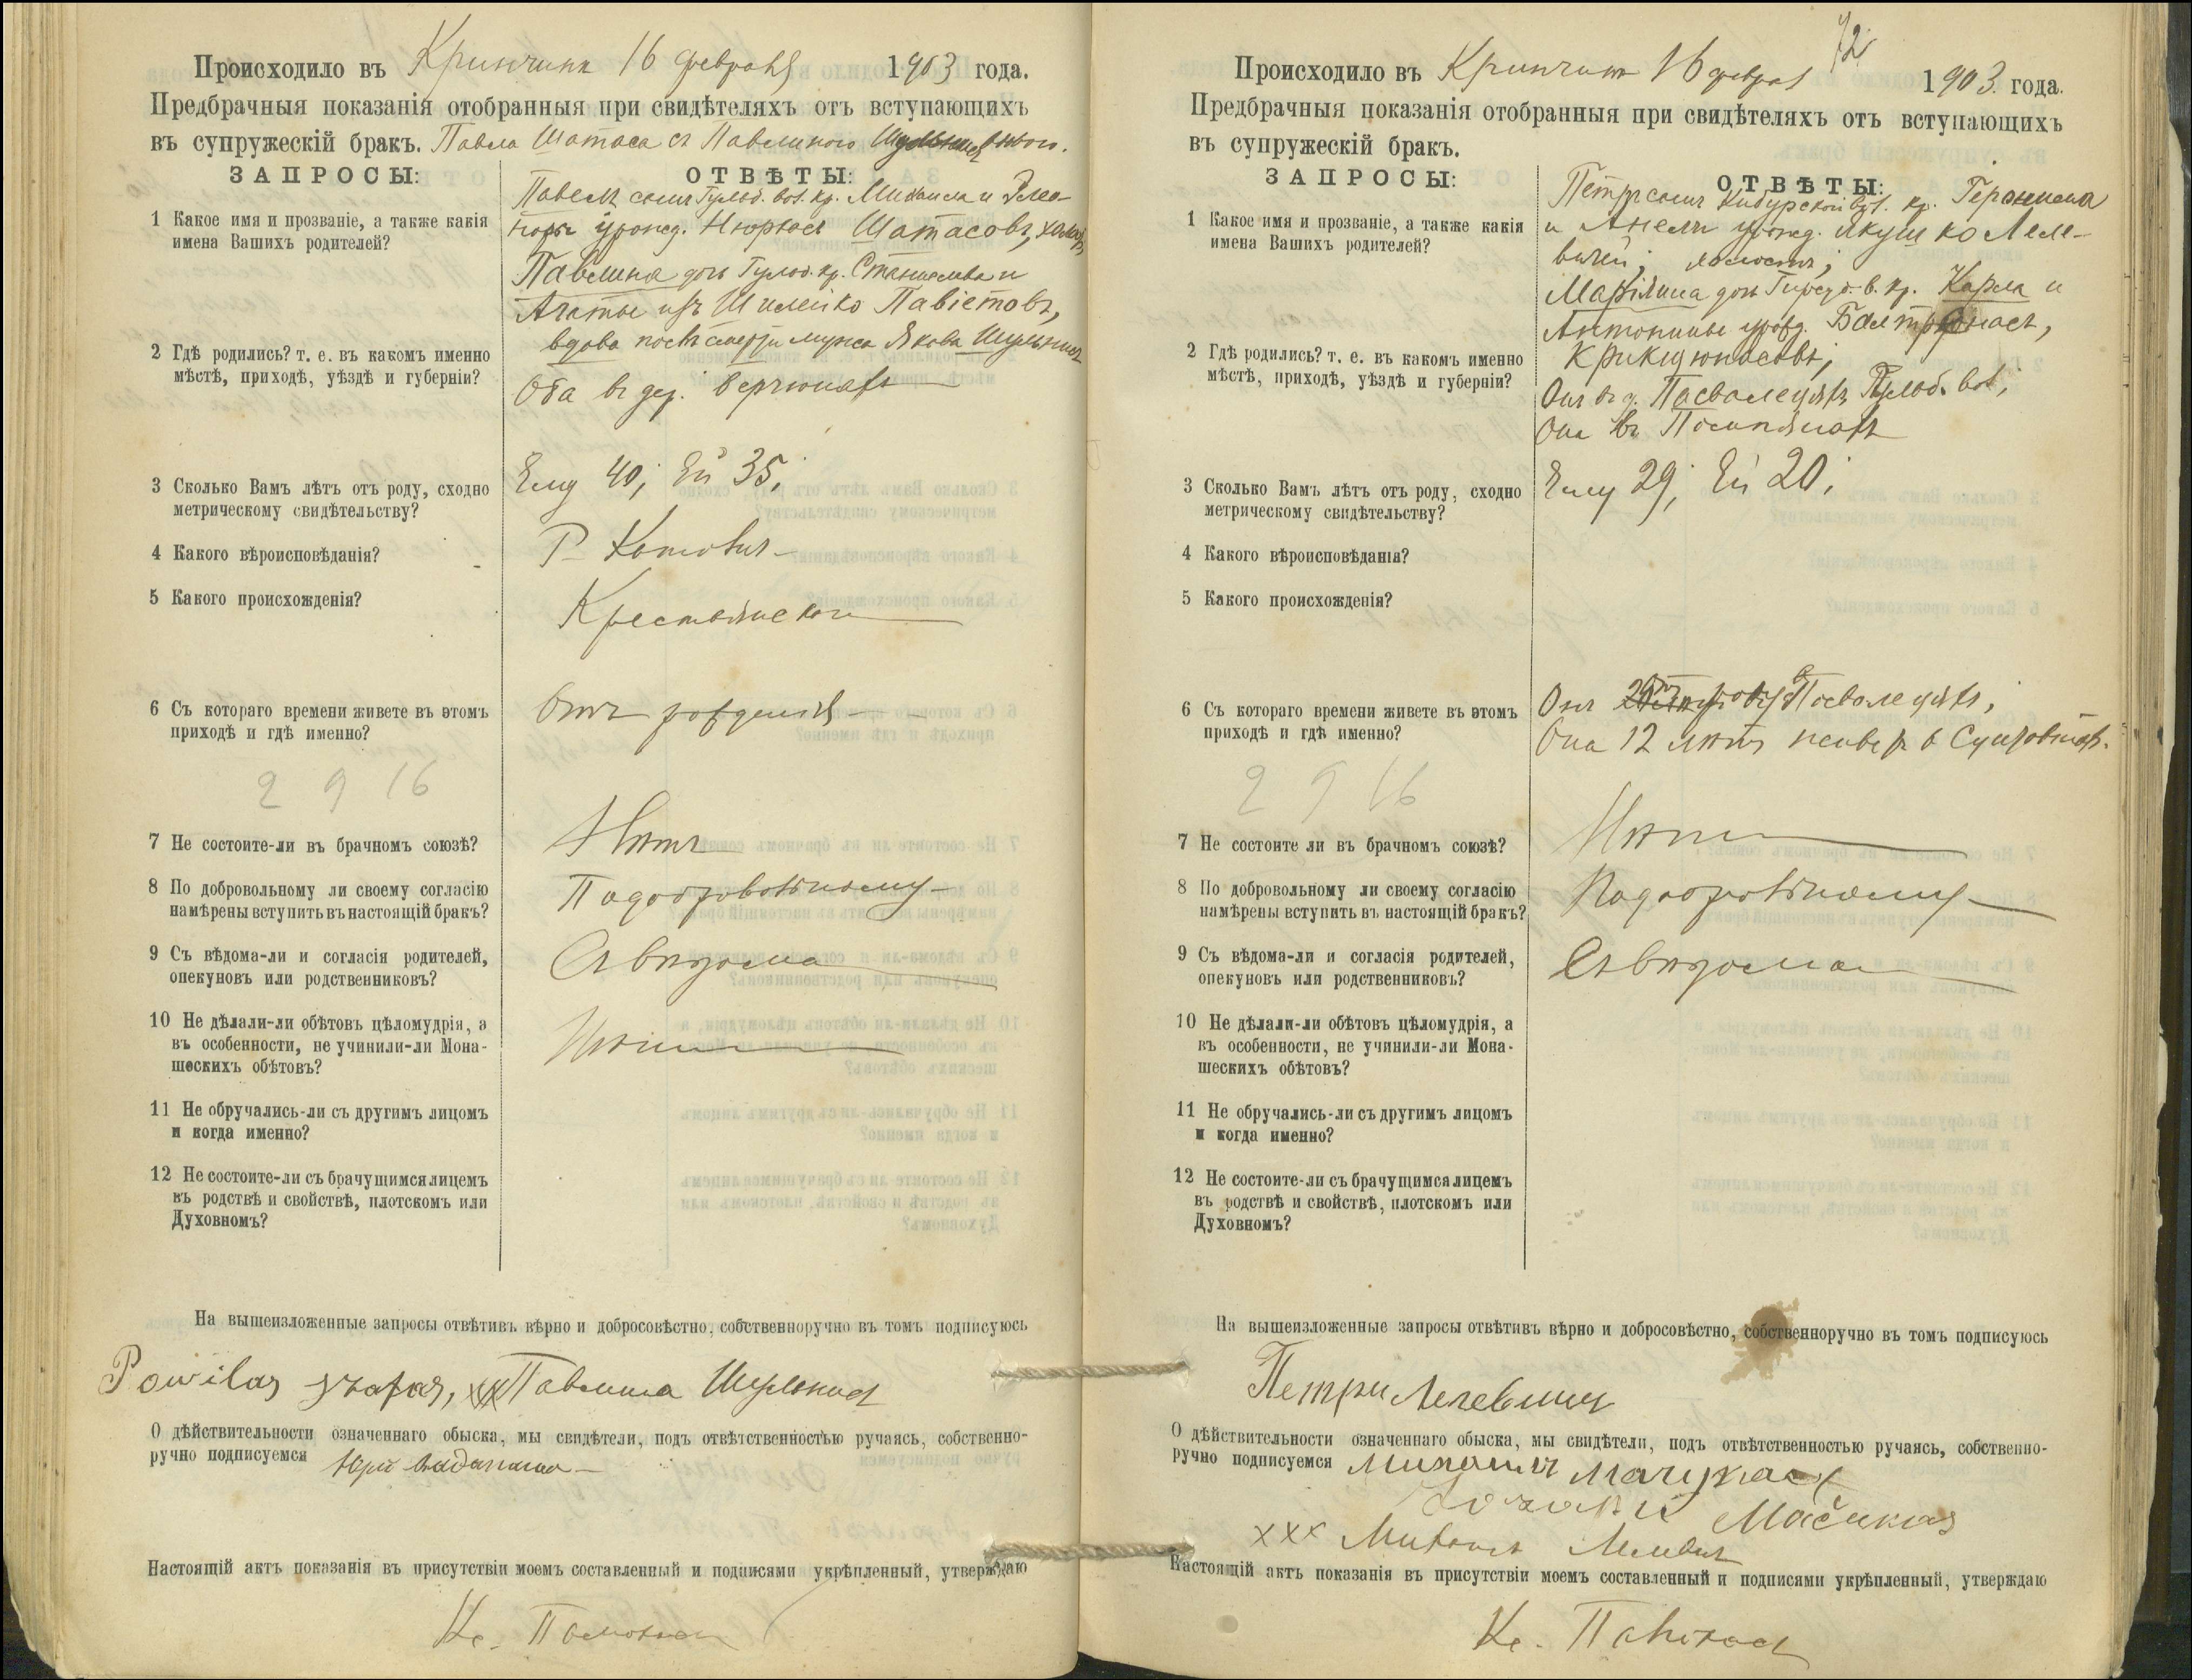 Происходило въ Кринчинѣ 16 февраля 1903 года.
Предбрачныя показанія отобранныя при свидѣтеляхъ отъ вступающихъ
въ супружескій бракъ. Павла Шатаса съ Павлиною
ЗАПРОСЫ:
ОТВѢТЫ:
Павелъ сынъ Гулоб. вол. кр. Михаила и Элео-
норы урожд. Шатасовъ, холост,
Павлина дочь Гулоб. кр. Станислава и
Агаты изъ Шилейко Павіетовъ,
вдова послѣ смерти мужа Якова Шульнисъ
1 Какое имя и прозваніе, а также какія
имена Вашихъ родителей?
2 Гдѣ родились? т. е. въ какомъ именно
мѣстѣ, приходѣ, уѣздѣ и губерніи?
Оба въ дер.
3 Сколько Вамъ лѣтъ отъ роду, сходно
метрическому свидѣтельству?
Ему 40; Ей 35;
4 Какого вѣроисповѣданія?
Р Католич
5 Какого происхожденія?
Крестьянскаго
6 Съ котораго времени живете въ этомъ
приходѣ и гдѣ именно?
Отъ рожденія
2 9 16
7 Не состоите-ли въ брачномъ союзѣ?
Нѣтъ
8 По добровольному ли своему согласію
намѣрены вступить въ настоящій бракъ?
Подобровольному
9 Съ вѣдома-ли и согласія родителей,
опекуновъ или родственниковъ?
Съ вѣдома
10 Не дѣлали-ли обѣтовъ цѣломудрія, а
въ особенности, не учинили-ли Мона-
шескихъ обѣтовъ?
Нѣтъ
11 Не обручались-ли съ другимъ лицомъ
и когда именно?
12 Не состоите-ли съ брачущимся лицемъ
въ родствѣ и свойствѣ, плотскомъ или
Духовномъ?
На вышеизложенные запросы отвѣтивъ вѣрно и добросовѣстно, собственноручно въ томъ подписуюсь
Powilas Szatas, ххх Павлина Шульнисъ
О дѣйствительности означеннаго обыска, мы свидѣтели, подъ отвѣтственностью ручаясь, собственно-
ручно подписуемся
Настоящій актъ показанія въ присутствіи моемъ составленный и подписями укрѣпленный, утверждаю
Кс.
72
Происходило въ Кринчинѣ 16 феврал 1903 года.
Предбрачныя показанія отобранныя при свидѣтеляхъ отъ вступающихъ
въ супружескій бракъ.
ЗАПРОСЫ:
ОТВѢТЫ:
Петръ сынъ Кибурской вол. кр. Геронима
и Анели урожд. Якушко Леле-
вичей; холостъ;
дочь в. кр. Карла и
Антонины урожд.
1 Какое имя и прозваніе, а также какія
имена Вашихъ родителей?
2 Гдѣ родились? т. е. въ какомъ именно
мѣстѣ, приходѣ, уѣздѣ и губерніи?
Онъ въ д. Гулоб. вол;
Она въ
3 Сколько Вамъ лѣтъ отъ роду, сходно
метрическому свидѣтельству?
Ему 29; Ей 20;
4 Какого вѣроисповѣданія?
5 Какого происхожденія?
6 Съ котораго времени живете въ этомъ
приходѣ и гдѣ именно?
Онъ
Она 12 лѣтъ
2 9 16
7 Не состоите ли въ брачномъ союзѣ?
Нѣтъ
8 По добровольному ли своему согласію
намѣрены вступить въ настоящій бракъ?
Подобровольному
9 Съ вѣдома-ли и согласія родителей,
опекуновъ или родственниковъ?
Съ вѣдома
10 Не дѣлали-ли обѣтовъ цѣломудрія, а
въ особенности, не учинили-ли Мона-
шескихъ обѣтовъ?
11 Не обручались-ли съ другимъ лицомъ
и когда именно?
12 Не состоите-ли съ брачущимся лицемъ
въ родствѣ и свойствѣ, плотскомъ или
Духовномъ?
На вышеизложенные запросы отвѣтивъ вѣрно и добросовѣстно, собственноручно въ томъ подписуюсь
Петри Лелевичъ
О дѣйствительности означеннаго обыска, мы свидѣтели, подъ отвѣтственностью ручаясь, собственно-
ручно подписуемся Михаилъ
ххх
Настоящій актъ показанія въ присутствіи моемъ составленный и подписями укрѣпленный, утверждаю
Кс.